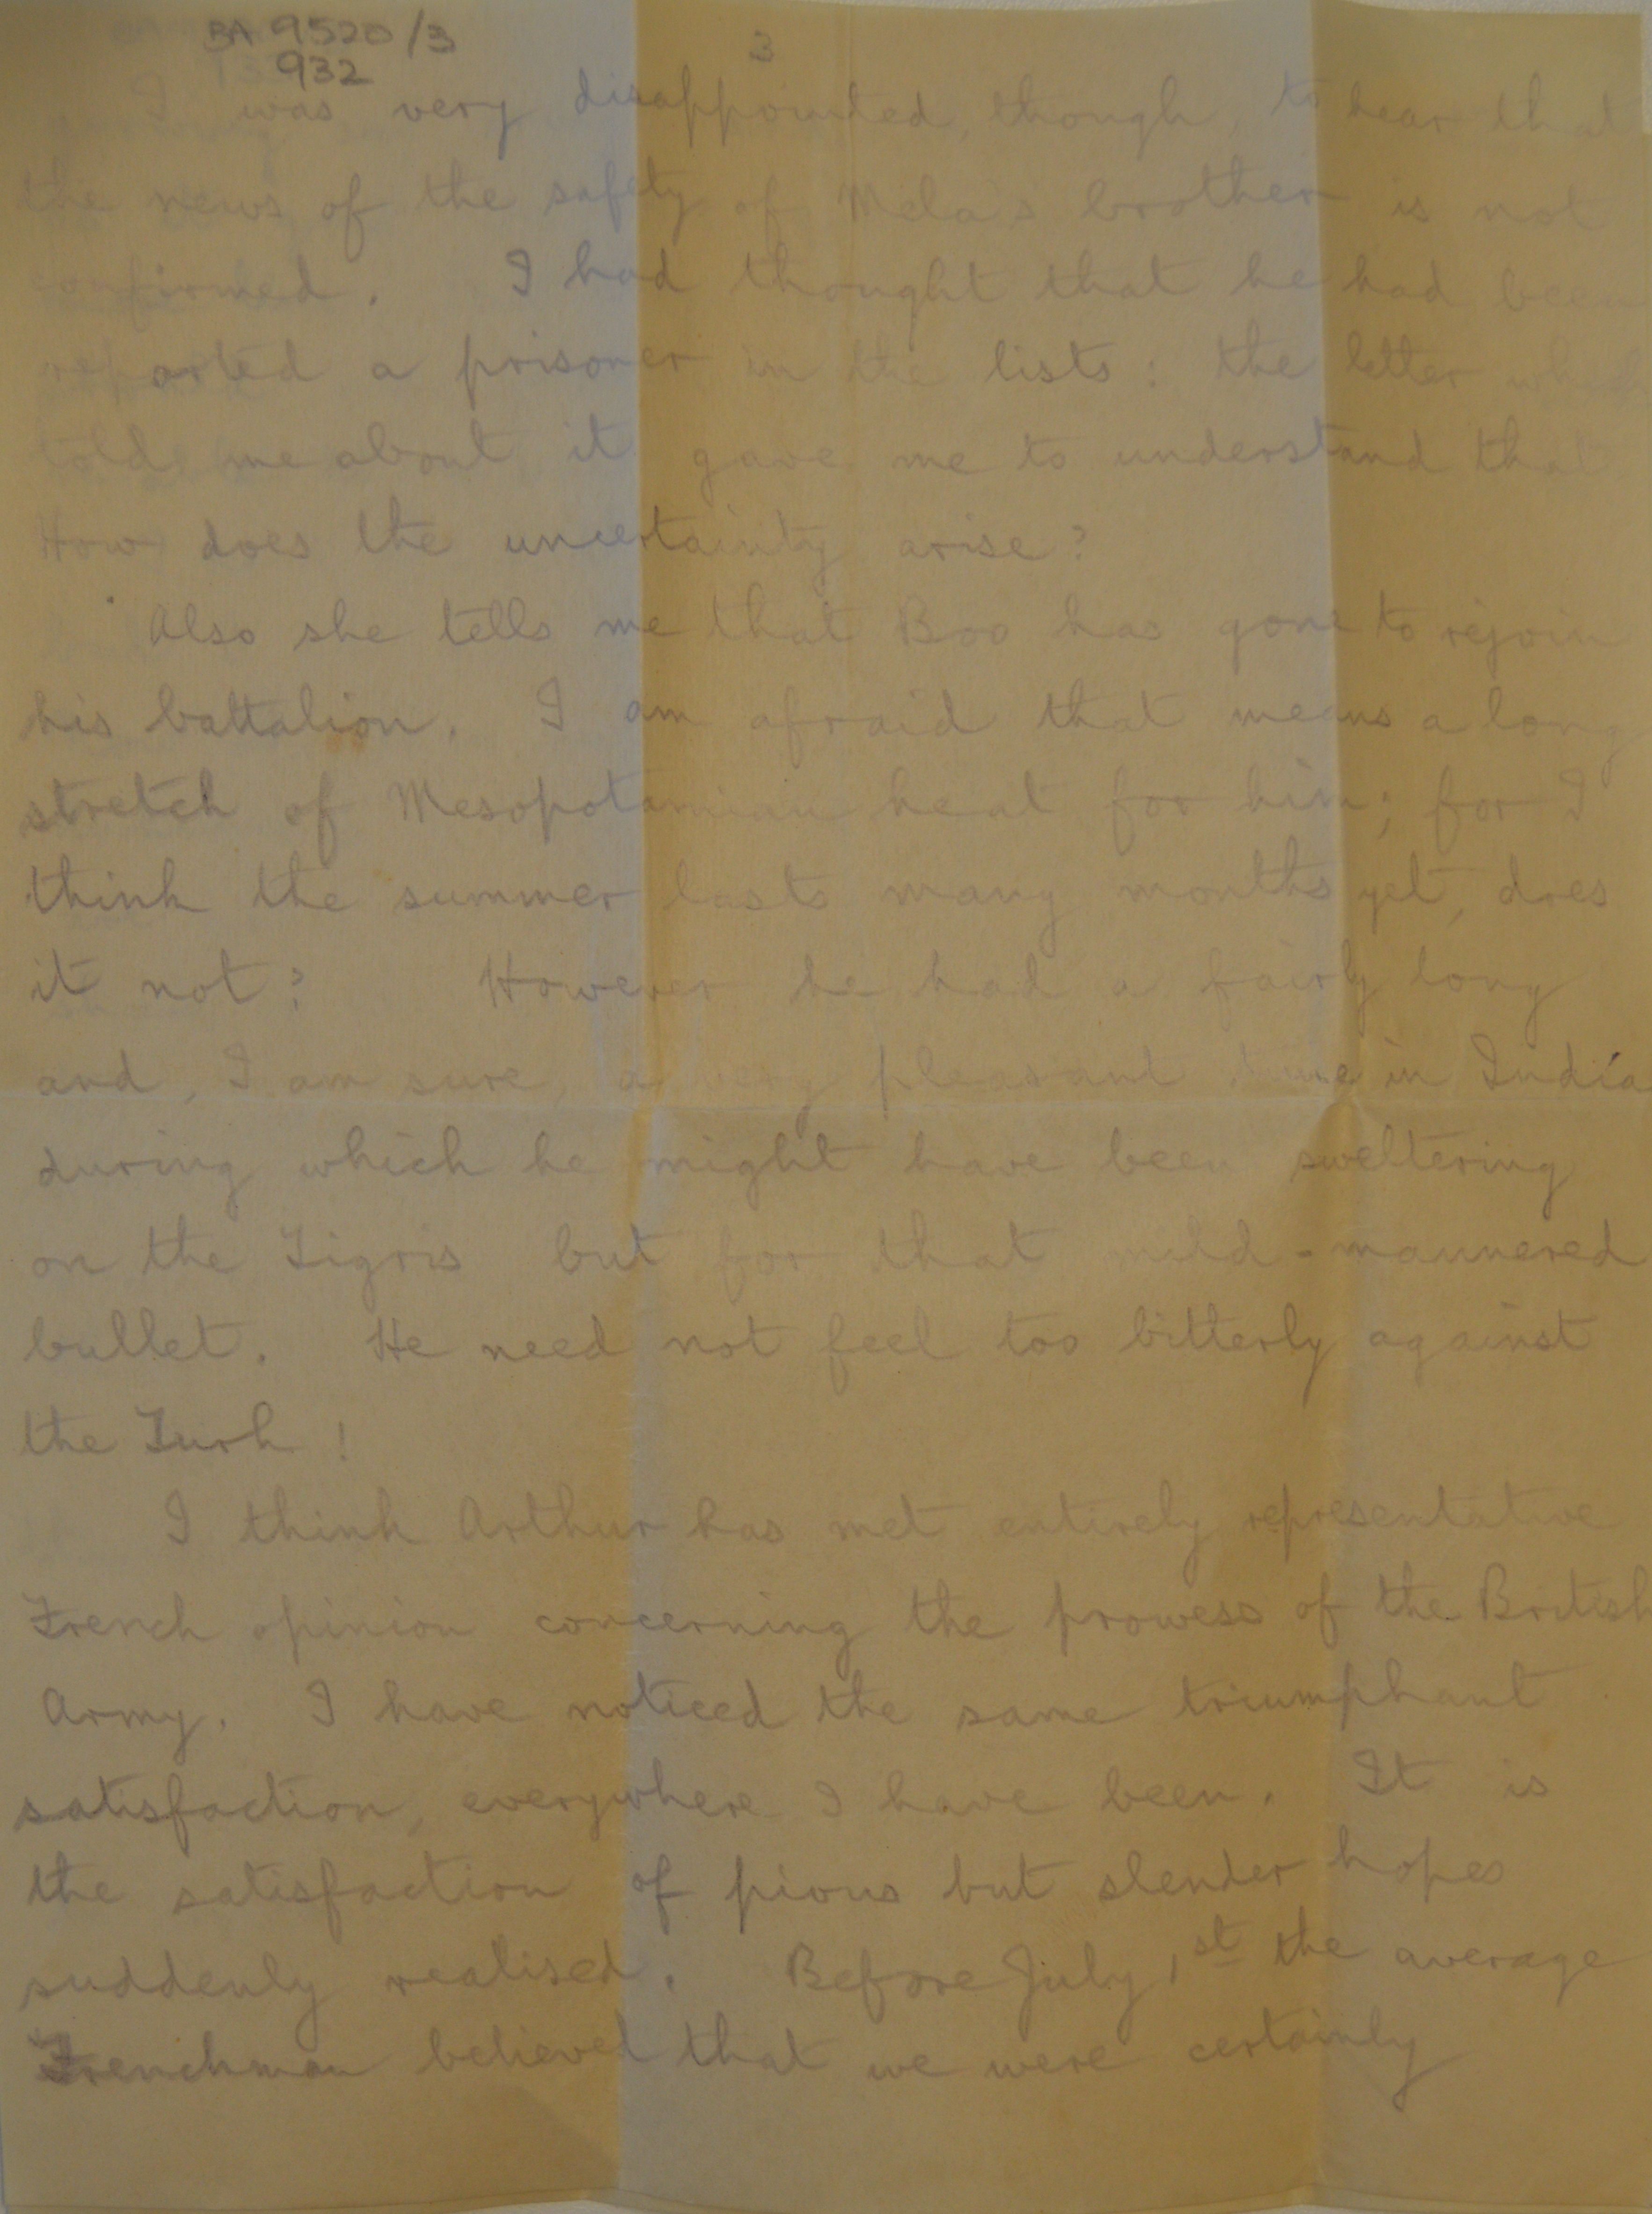 BA 9520/3
932
3
I was very disappointed, though, to hear that
the news of the safety of Mela's brother is not
confirmed. I had thought that he had been
reported a prisoner in the lists: the letter which
told me about it gave me to understand that
How does the uncertainty arise?
Also she tells me that Boo has gone to rejoin
his battalion. I am afraid that means a long
stretch of Mesopotamian heat for him; for I
think the summer lasts many months yet, does
it not? However he had a fairly long
and, I am sure, a very pleasant time in India
during which he might have been sweltering
on the Tigris but for that mild-mannered
bullet. He need not feel too bitterly against
the Turk!
I think Arthur has met entirely representative
French opinion concerning the prowess of the British
Army. I have noticed the same triumphant
satisfaction, everywhere I have been. It is
the satisfaction of pious but slender hopes
suddenly realised. Before July 1st the average
Frenchman believed that we were certainly